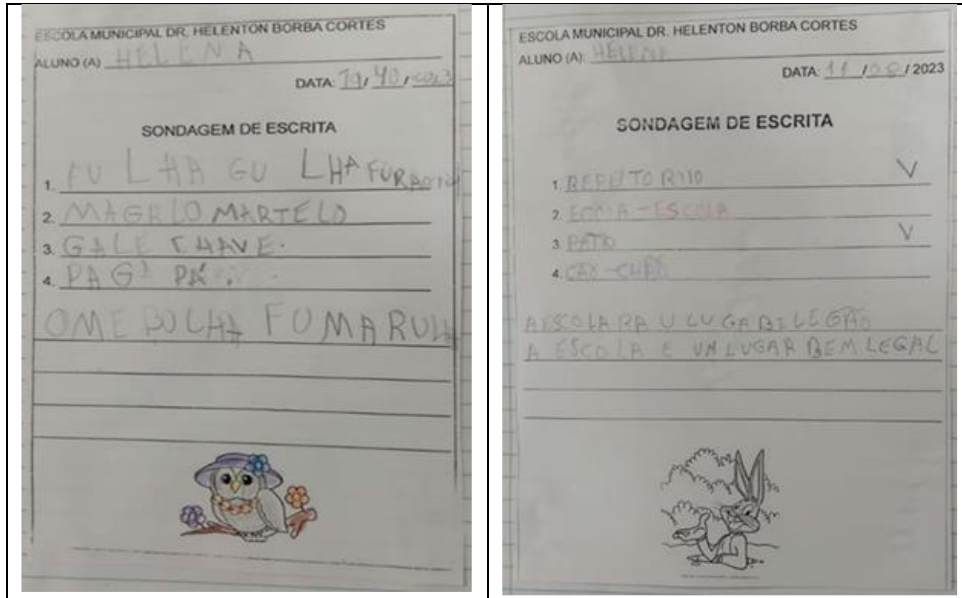 ESCOLA MUNICIPAL DR. HELENTON BORBA CORTES
ALUNO (A) HELENA
DATA: 19/10/2023
SONDAGEM DE ESCRITA
1. FU LHA GU LHA FURADOR
2. MAGELO MARTELO
3. GALE CHAVE.
4. PAG PÁ.
OME BOLHA FUMARULHA
ESCOLA MUNICIPAL DR. HELENTON BORBA CORTES
ALUNO (A): HELENA
DATA: 11 / / 2023
SONDAGEM DE ESCRITA
1. REFEITORIO V
2. ECOLA - ESCOLA
3. PATO V
4. CAO - CHÃO
A ESCOLA RA U LUGA BELEGÃO
A ESCOLA E UM LUGAR BEM LEGAL